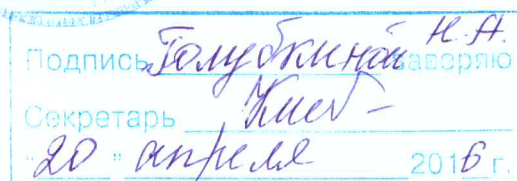 Подпись Голубкиной Н.А. заверяю
Секретарь
"20" апреля 2016 г.